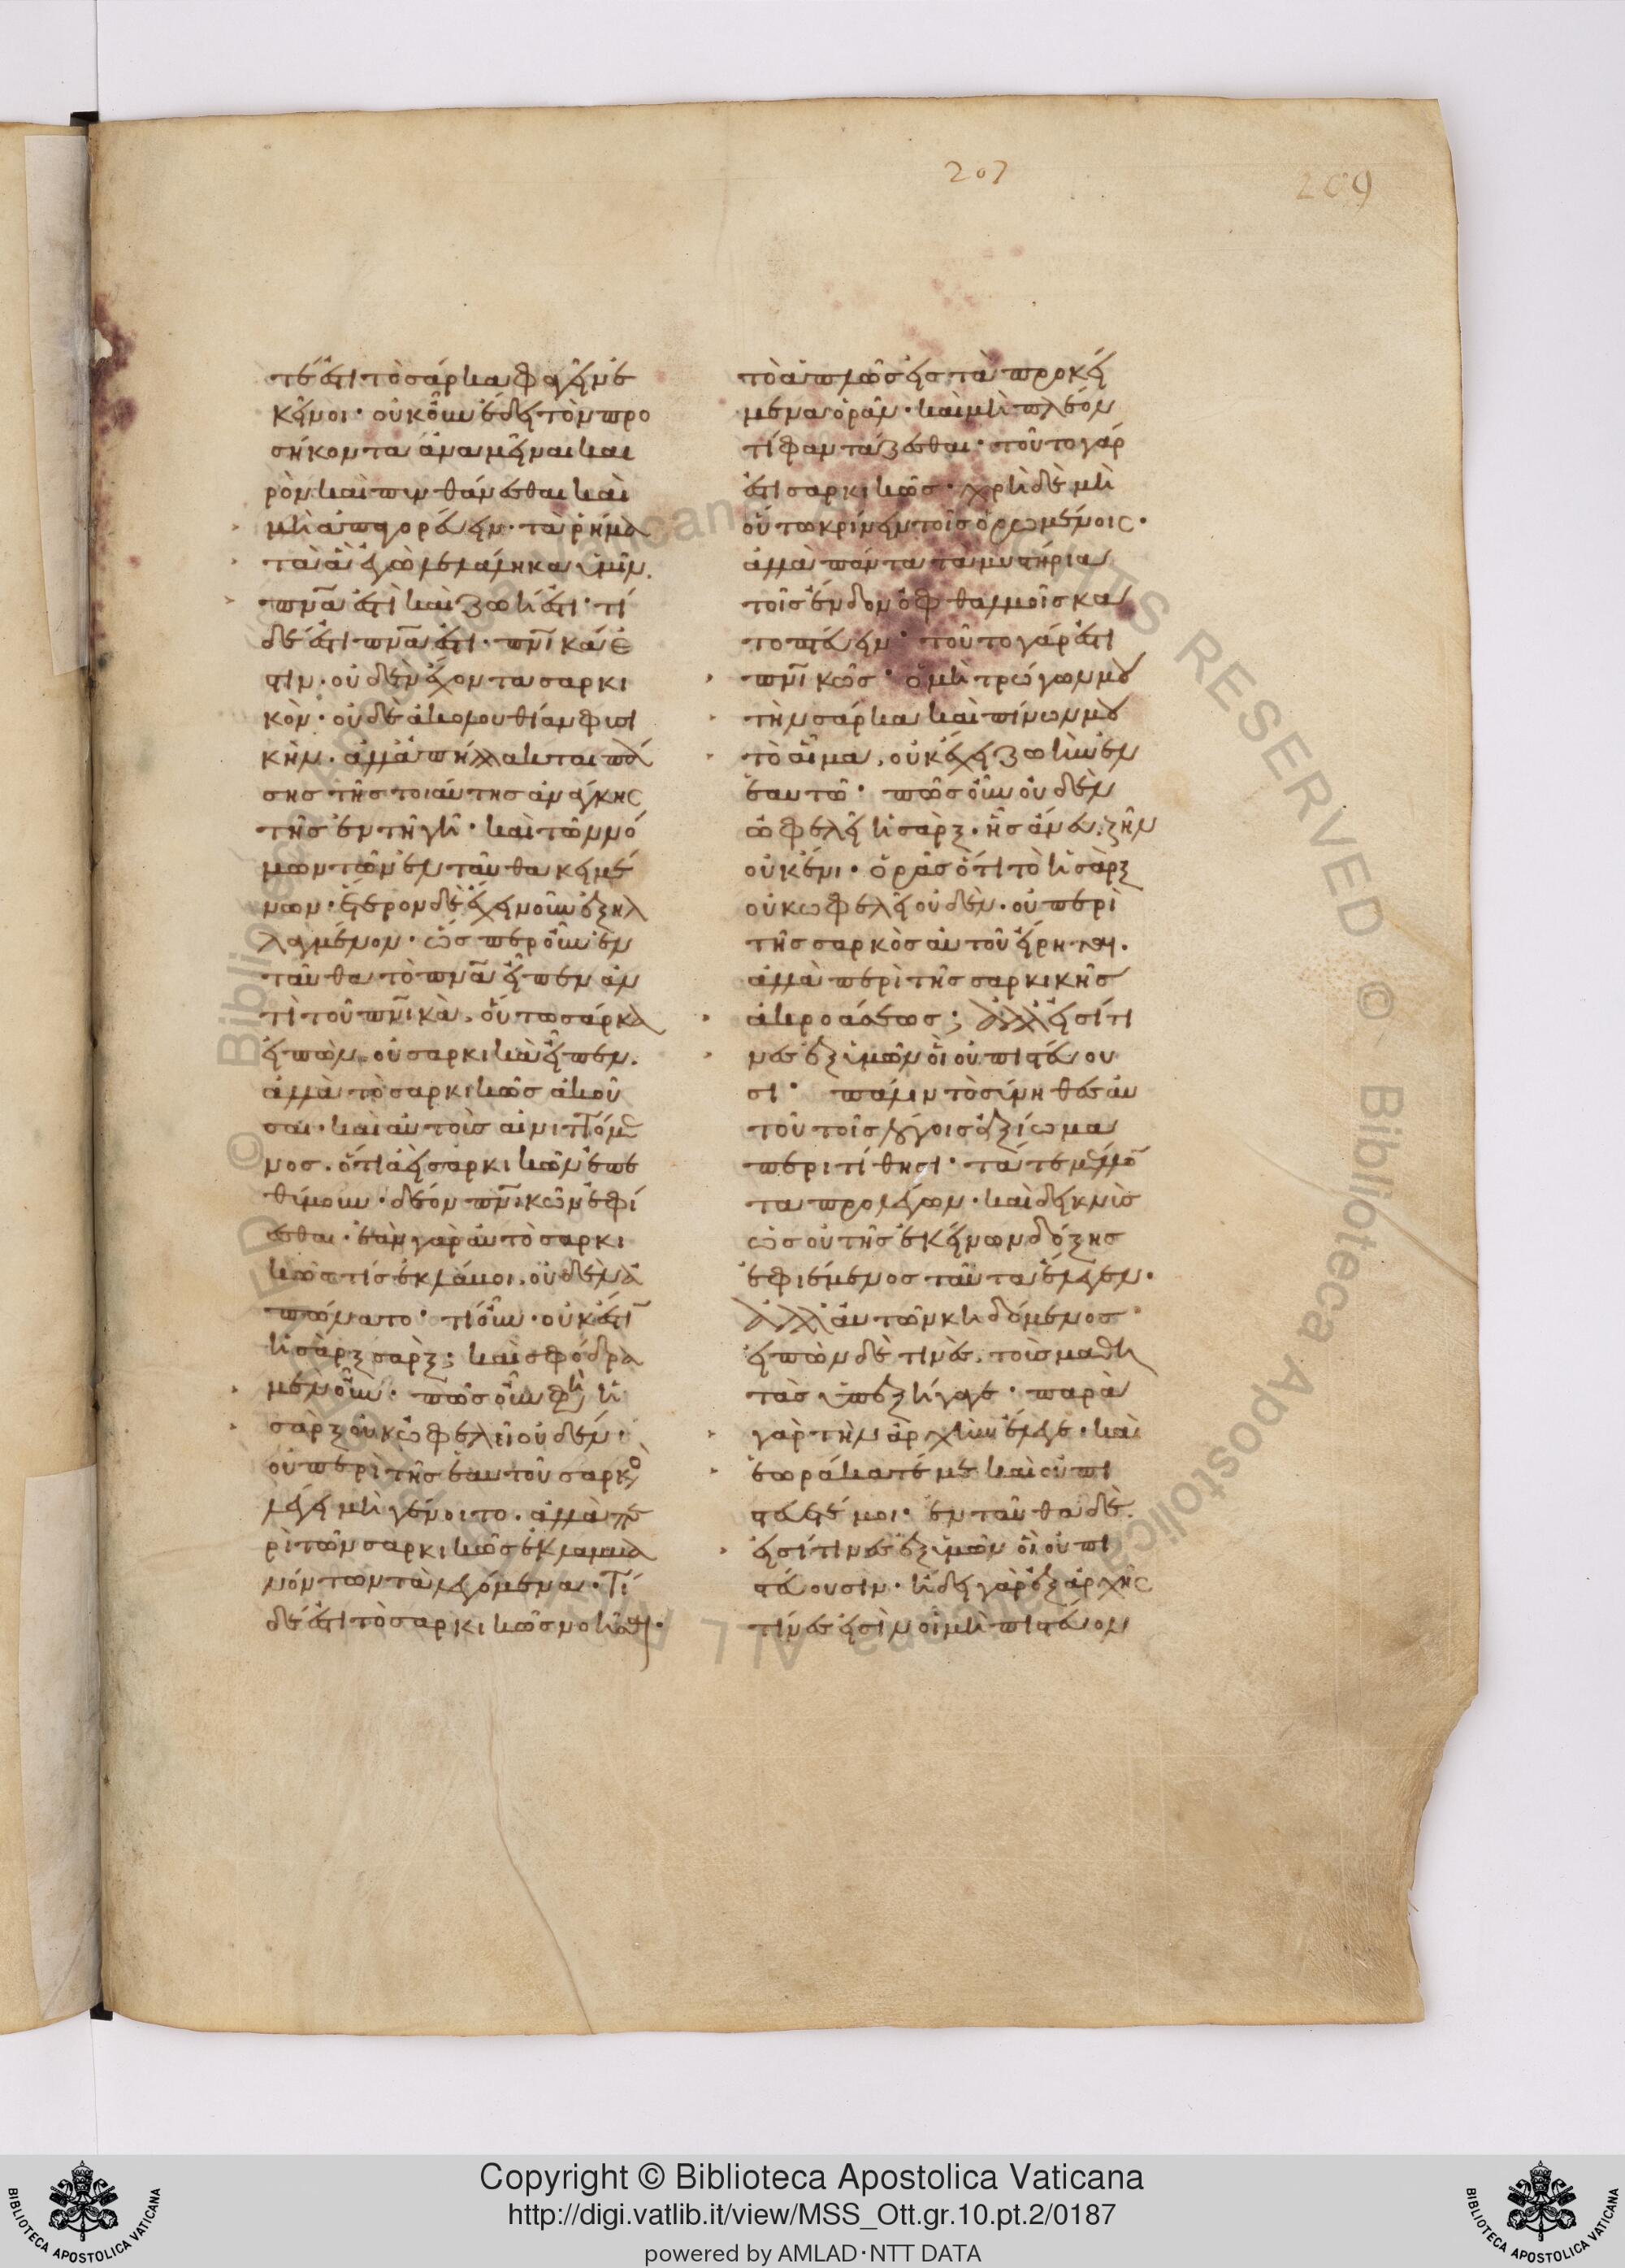 207
209
τέ ἐστι τὸ σάρκα φαγεῖν ἐ
κεῖνοι· οὐκοῦν ἔδει τὸν προ
σήκοντα ἀναμεῖναι και
ρὸν καὶ πυνθάνεσθαι καὶ
μὴ ἀπαγορεύειν· τὰ ῥήμα
τα ἃ ἐγὼ λελάληκα ὑμῖν,
πνᾶ ἐστὶ καὶ ζωή ἐστι· τί
δέ ἐστι πνᾶ ἐστι· πνικά ἐ
στιν· οὐδὲν ἔχοντα σαρκι
κὸν· οὐδὲ ἀκολουθίαν φυσι
κὴν· ἀλλ' ἀπήλλακται πά
σης τῆς τοιαύτης ἀνάγκης
τῆς ἐν τῇ γῇ· καὶ τῶν νό
μων τῶν ἐνταῦθα κειμέ
νων· ἕτερον δὲ ἔχει νοῦν ἐξηλ
λαγμένον· ὥσπερ οὖν ἐν
ταῦθα τὸ πνᾶ εἶπεν ἀν
τὶ τοῦ πνικὰ, οὕτω σάρκα
εἰπὼν, οὐ σαρκικὰ εἶπεν.
ἀλλὰ τὸ σαρκικῶς ἀκοῦ
σαι· καὶ αὐτοὺς αἰνιττόμε
νος. ὅτι ἀεὶ σαρκικῶν ἐπε
θύμουν· δέον πνικῶν ἐφί
εσθαι· ἐὰν γὰρ αὐτὸ σαρκι
κῶς τίς ἐκλάβοι, οὐδὲν ἀ
πώνατο· τί οὖν· οὐκ ἔστιν
ἡ σὰρξ σαρξ; καὶ σφόδρα
μὲν οὖν· πῶς οὖν φη, ἡ
σὰρξ οὐκ ὠφελεῖ οὐδέν·
οὐ περὶ τῆς ἑαυτοῦ σαρκὸς
λέγει μὴ γένοιτο. ἀλλὰ πε
ρὶ τῶν σαρκικῶς ἐκλαμβα
νόντων τὰ λεγόμενα· Τί
δέ ἐστι τὸ σαρκικῶς νοῆσαι·
τὸ ἁπλῶς εἰς τὰ προκεί
μενα ὁρᾶν· καὶ μὴ πλέον
τί φαντάζεσθαι· τοῦτο γάρ
ἐστι σαρκικῶς· χρὴ δὲ μὴ
οὕτω κρίνειν τοῖς ὁρωμένοις·
ἀλλὰ πάντα τὰ μυστήρια
τοῖς ἔνδον ὀφθαλμοῖς κα
τοπτεύειν· τοῦτο γάρ ἐστι
πνικῶς· ὁ μὴ τρώγων μου
τὴν σάρκα καὶ πίνων μου
τὸ αἷμα, οὐκ ἔχει ζωὴν ἐν
ἑαυτῶ· πῶς οὖν οὐδὲν
ὠφελεῖ ἡ σάρξ· ἧς ἄνευ ζῆν
οὐκ ἔνι· ὁρᾶς ὅτι τὸ ἡ σὰρξ
οὐκ ὠφελεῖ οὐδὲν· οὐ περὶ
τῆς σαρκὸς αὐτοῦ εἴρηται.
ἀλλὰ περὶ τῆς σαρκικῆς
ἀκροάσεως; Ἀλλ' εἰσί τι
νες ἐξ ὑμῶν οἳ οὐ πιστεύου
σι· πάλιν τὸ σύνηθες αὐ
τοῦ τοῖς λόγοις ἀξίωμα
περιτίθησι· τά τε μέλλον
τα προλέγων· καὶ δεικνὺς
ὡς οὐ τῆς ἐκείνων δόξης
ἐφιέμενος ταῦτα ἔλεγεν·
Ἀλλ' αὐτῶν κηδόμενος·
εἰπὼν δὲ τινὲς, τοὺς μαθη
τὰς ὑπεξήγαγε· παρὰ
γὰρ τὴν ἀρχὴν ἔλεγε· καὶ
ἑωράκατέ με καὶ οὐ πι
στεύετέ μοι· ἐνταῦθα δὲ
εἰσί τινες ἐξ ὑμῶν οἳ οὐ πι
στεύουσιν· ἤδει γὰρ ἐξ ἀρχῆς
τίνες εἰσὶν οἱ μὴ πιστεύον
Copyright © Biblioteca Apostolica Vaticana
http://digi.vatlib.it/view/MSS_Ott.gr.10.pt.2/0187
powered by AMLAD·NTT DATA
BIBLIOTECA APOSTOLICA VATICANA
BIBLIOTECA APOSTOLICA VATICANA